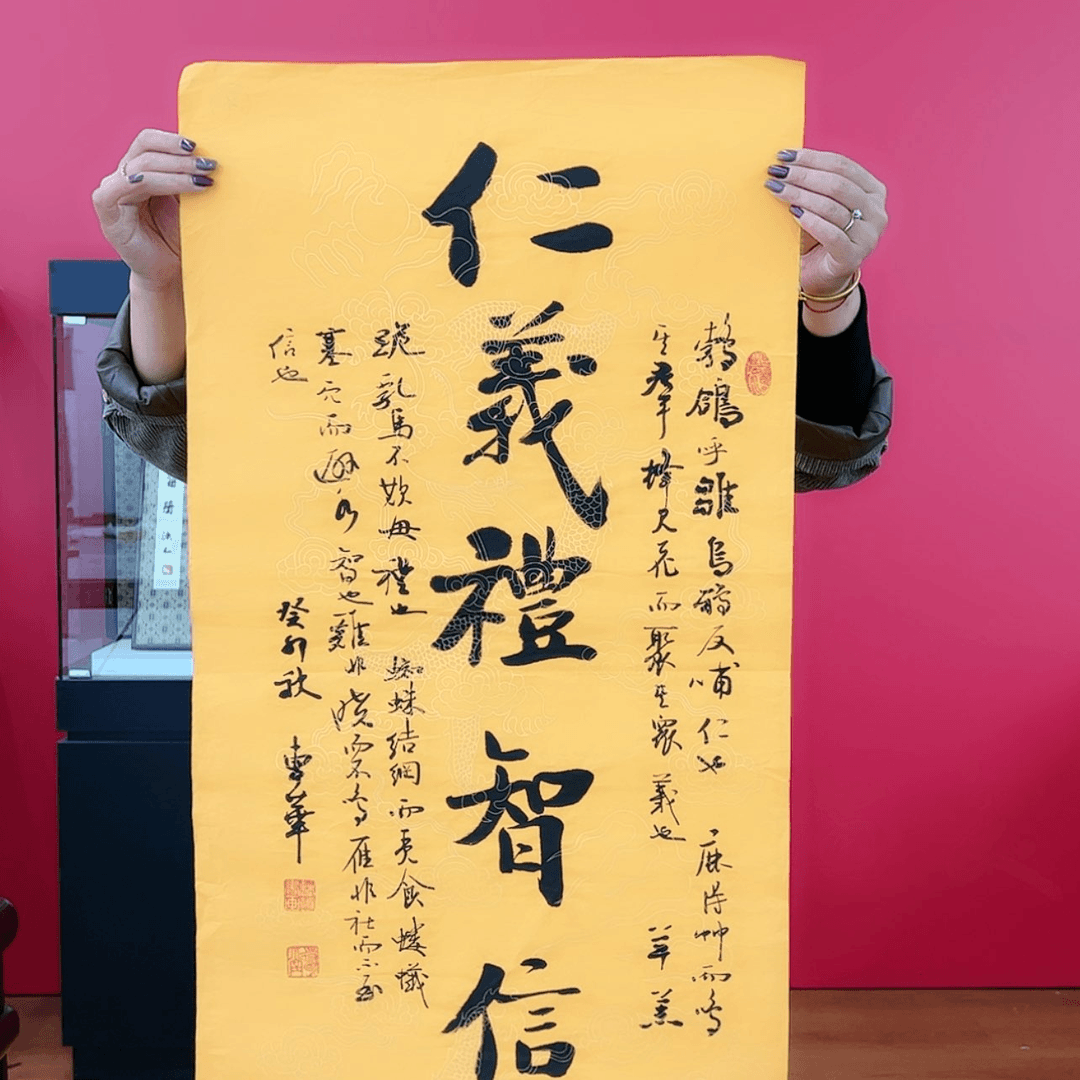 鵓鴿呼雛烏鴉反哺仁也 鹿得艸而鳴
其群蜂見花而聚其衆義也 羊羔
仁義禮智信
跪乳馬不欺母禮也 蜘蛛結網而覓食螻蟻
塞穴而避水智也雞非曉而不鳴雁非社而不至
信也
癸卯秋 華